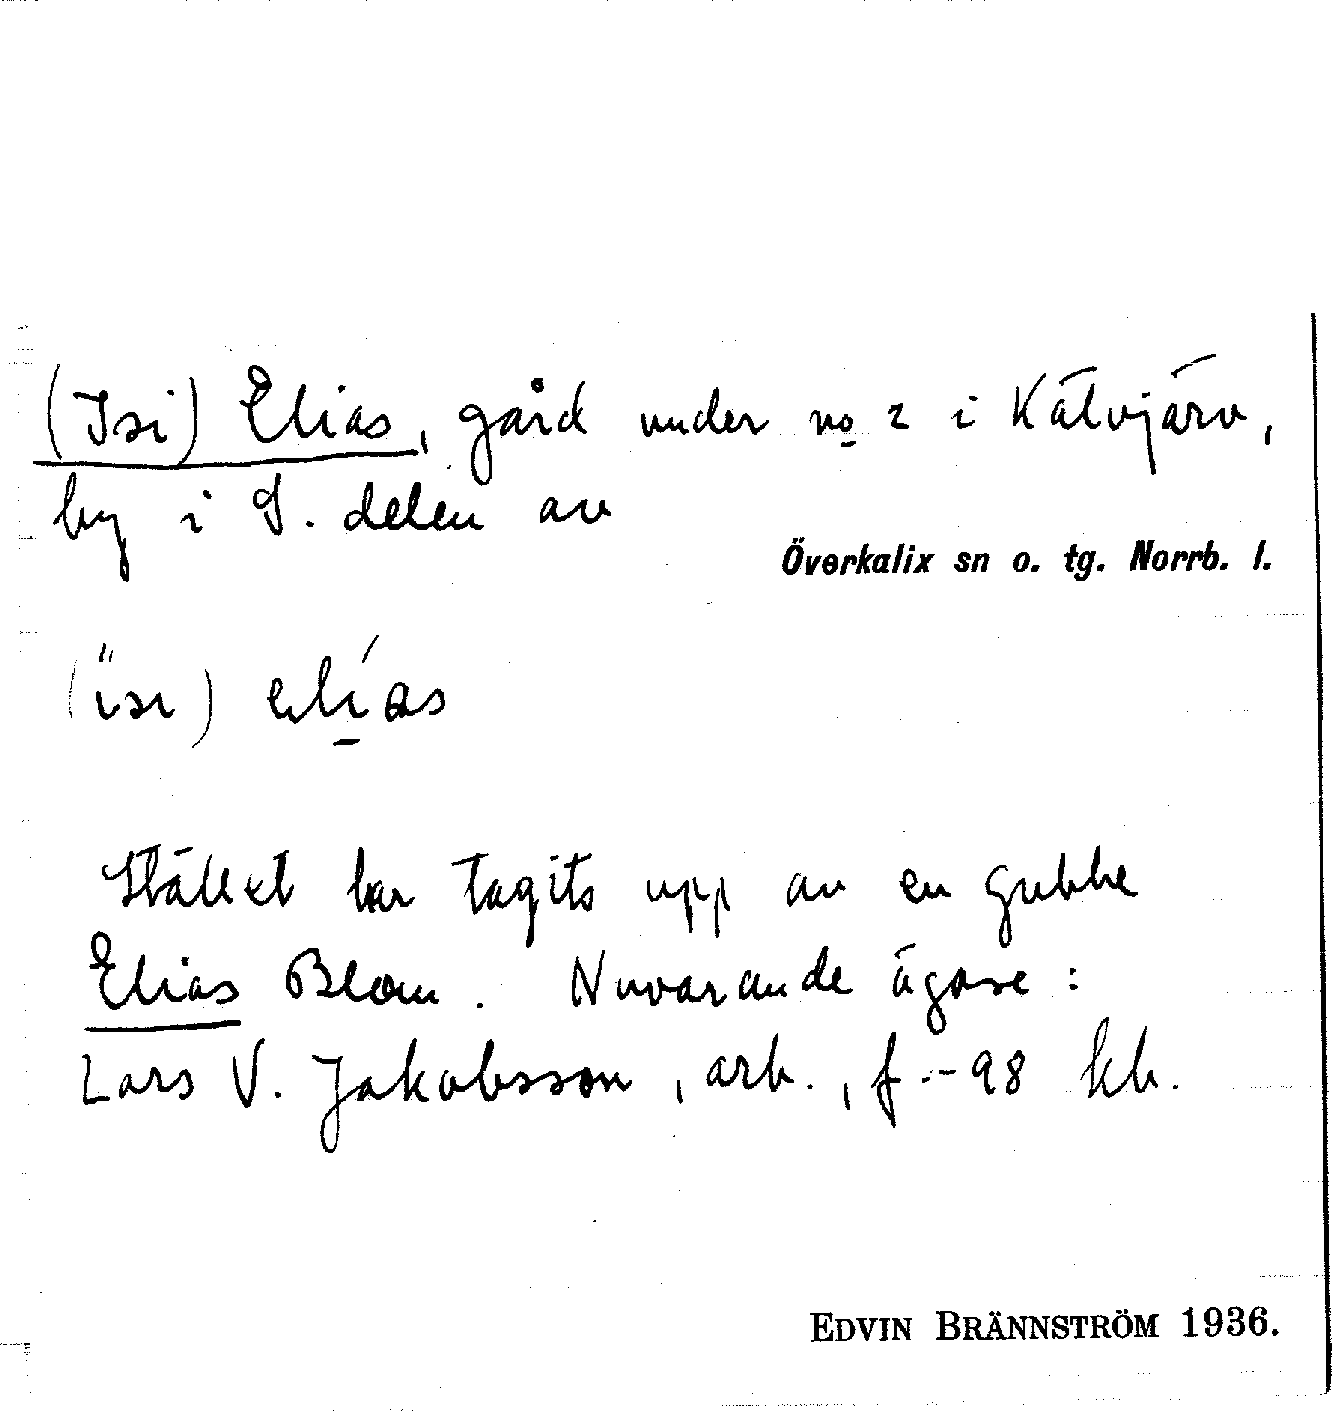 (Isi) Elias, gård under no 2 i Kälvjärv,
by i S. delen av
Överkalix sn o. tg. Norrb. l.
(ïsi) elías
Stället har tagits upp av en gubbe
Elias Blom. Nuvarande ägare:
Lars V. Jakobsson, arb., f.-98 kb.
EDVIN BRÄNNSTRÖM 1936.